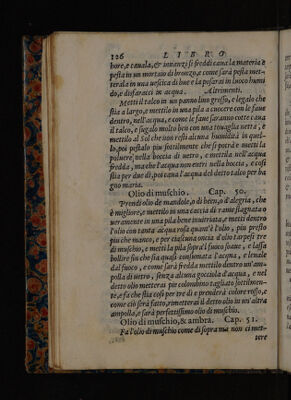 126 LIBRO
bore, e cauala, & innanzi si freddi caua la materia e
pesta in un mortaio di bronzo, e come sarà pesta met-
terala in una uessica di bue e la posarai in luoco humi
do, e disfarassi in acqua. Altrimenti.
Metti il talco in un panno lino grosso, e legalo che
stia a largo, e mettilo in una pila a cuocere con le faue
dentro, nell'acqua, e come le faue saranno cotte caua
il talco, e sugalo molto ben con una touaglia netta, e
mettilo al Sol che non resti alcuna humidità in quel-
lo, poi pestalo piu sottilmente che si potrà e metti la
poluere nella boccia di uetro, e mettila nell'acqua
fredda, ma che l'acqua non entri nella boccia, e cosi
stia per due dì, poi caua l'acqua del detto talco per ba
gno maria.
Olio di muschio. Cap. 50.
Prendi olio de mandole, o di been, o d'alegria, che
è migliore, e mettilo in una cacia di rame stagnata o
ueramente in una pila bene inuitriata, e metti dentro
l'olio con tanta acqua rosa quant'è l'olio, piu presto
piu che manco, e per ciascuna oncia d'olio tar pesi tre
di muschio, e metti la pila sopra'l fuoco soaue, e lassa
bollire fin che sia quasi consumata l'acqua, e leuale
dal fuoco, e come sarà fredda mettilo dentro un'am-
polla di uetro, senza alcuna gocciola d'acqua, e nel
detto olio metteras pie colombino tagliato sottilmen-
te, e fa che stia cosi per tre dì e prenderà colore rosso, e
come ciò sarà fatto, rimetterai il detto olio in un'altra
ampolla, e sarà perfettissimo olio di muschio.
Olio di muschio, & ambra. Cap. 51.
Fa l'olio di muschio come di sopra ma non ci met-
tere